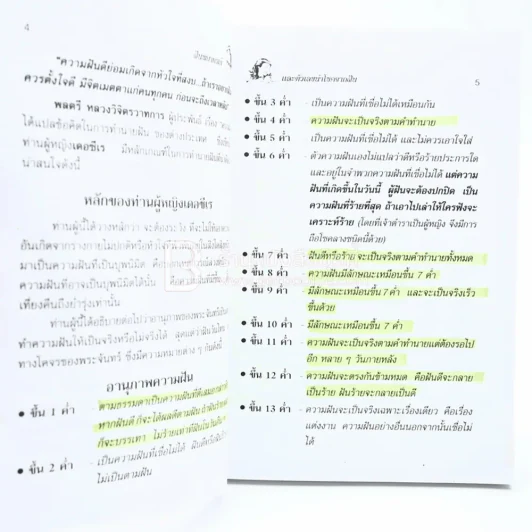 4
"ความฝันดีย่อมเกิดจากหัวใจที่สงบ
ควรตั้งใจดี มีจิตเมตตาแก่คนทุกคน
พลตรี หลวงวิจิตรวาทการ
ได้แปลข้อคิดในการทำนายฝัน ของต่างประเทศ
ท่านผู้หญิงเดอซีเร มีหลักเกณฑ์ในการทำนายฝัน
น่าสนใจดังนี้
หลักของท่านผู้หญิงเดอซีเร
ท่านผู้นี้ได้วางหลักว่า จะต้องระวัง
อันเกิดจากร่างกายไม่ปกติหรือหัวใจ
มาเป็นความฝันที่เป็นบุพนิมิต
ความฝันที่อาจเป็นบุพนิมิตได้นั้น
เที่ยงคืนถึงย่ำรุ่งเท่านั้น
ท่านผู้นี้ได้อธิบายต่อไปว่า
ทำความฝันให้เป็นจริงหรือไม่จริงได้
ทางโคจรของพระจันทร์ ซึ่งมีความหมายต่าง ๆ กันดังนี้
อานุภาพความฝัน
● ขึ้น 1 ค่ำ - ตามธรรมดาเป็นความฝันที่ดี
หากฝันดี ก็จะได้ผลดีตามฝัน
ก็จะบรรเทา ไม่ร้ายเท่าที่ฝัน
● ขึ้น 2 ค่ำ - เป็นความฝันที่เชื่อไม่ได้
ไม่เป็นตามฝัน
และตัวเลขนำโชคจากฝัน 5
● ขึ้น 3 ค่ำ - เป็นความฝันที่เชื่อไม่ได้เหมือนกัน
● ขึ้น 4 ค่ำ - ความฝันจะเป็นจริงตามคำทำนาย
● ขึ้น 5 ค่ำ - เป็นความฝันที่เชื่อไม่ได้ และไม่ควรเอาใจใส่
● ขึ้น 6 ค่ำ - ตัวความฝันเองไม่แปลว่าดีหรือร้ายประการใด
และอยู่ในจำพวกความฝันที่เชื่อไม่ได้ แต่ความ
ฝันที่เกิดขึ้นในวันนี้ ผู้ฝันจะต้องปกปิด เป็น
ความฝันที่ร้ายที่สุด ถ้าเอาไปเล่าให้ใครฟังจะ
เคราะห์ร้าย (โดยที่เจ้าตำราเป็นผู้หญิง จึงมีการ
ถือโชคลางชนิดนี้ด้วย)
● ขึ้น 7 ค่ำ - ฝันดีหรือร้าย จะเป็นจริงตามคำทำนายทั้งหมด
● ขึ้น 8 ค่ำ - ความฝันมีลักษณะเหมือนขึ้น 7 ค่ำ
● ขึ้น 9 ค่ำ - มีลักษณะเหมือนขึ้น 7 ค่ำ และจะเป็นจริงเร็ว
ขึ้นด้วย
● ขึ้น 10 ค่ำ - มีลักษณะเหมือนขึ้น 7 ค่ำ
● ขึ้น 11 ค่ำ - ความฝันจะเป็นจริงตามคำทำนายแต่ต้องรอไป
อีก หลาย ๆ วันภายหลัง
● ขึ้น 12 ค่ำ - ความฝันจะตรงกันข้ามหมด คือฝันดีจะกลาย
เป็นร้าย ฝันร้ายจะกลายเป็นดี
● ขึ้น 13 ค่ำ - ความฝันจะเป็นจริงเฉพาะเรื่องเดียว คือเรื่อง
แต่งงาน ความฝันอย่างอื่นนอกจากนั้นเชื่อไม่
ได้